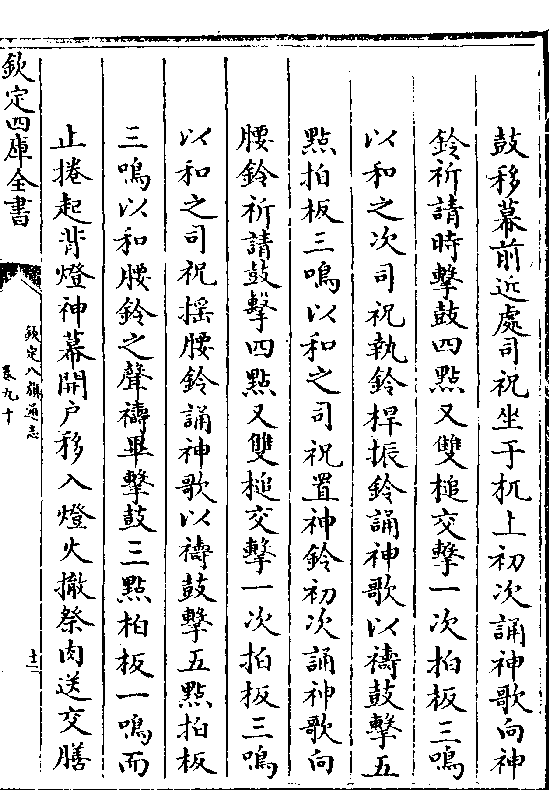 鼓移幕前近處司祝坐于杌上初次誦神歌向神
鈴祈請時擊鼓四點又雙槌交擊一次拍板三鳴
以和之次司祝執鈴桿振鈴誦神歌以禱鼓擊五
點拍板三鳴以和之司祝置神鈴初次誦神歌向
腰鈴祈請鼓擊四點又雙槌交擊一次拍板三鳴
以和之司祝摇腰鈴誦神歌以禱鼓擊五點拍板
三鳴以和腰鈴之聲禱畢擊鼓三點拍板一鳴而
止捲起背燈神幕開户移入燈火撤祭肉送交膳
欽定四庫全書
欽定八旗通志
卷九十
十二